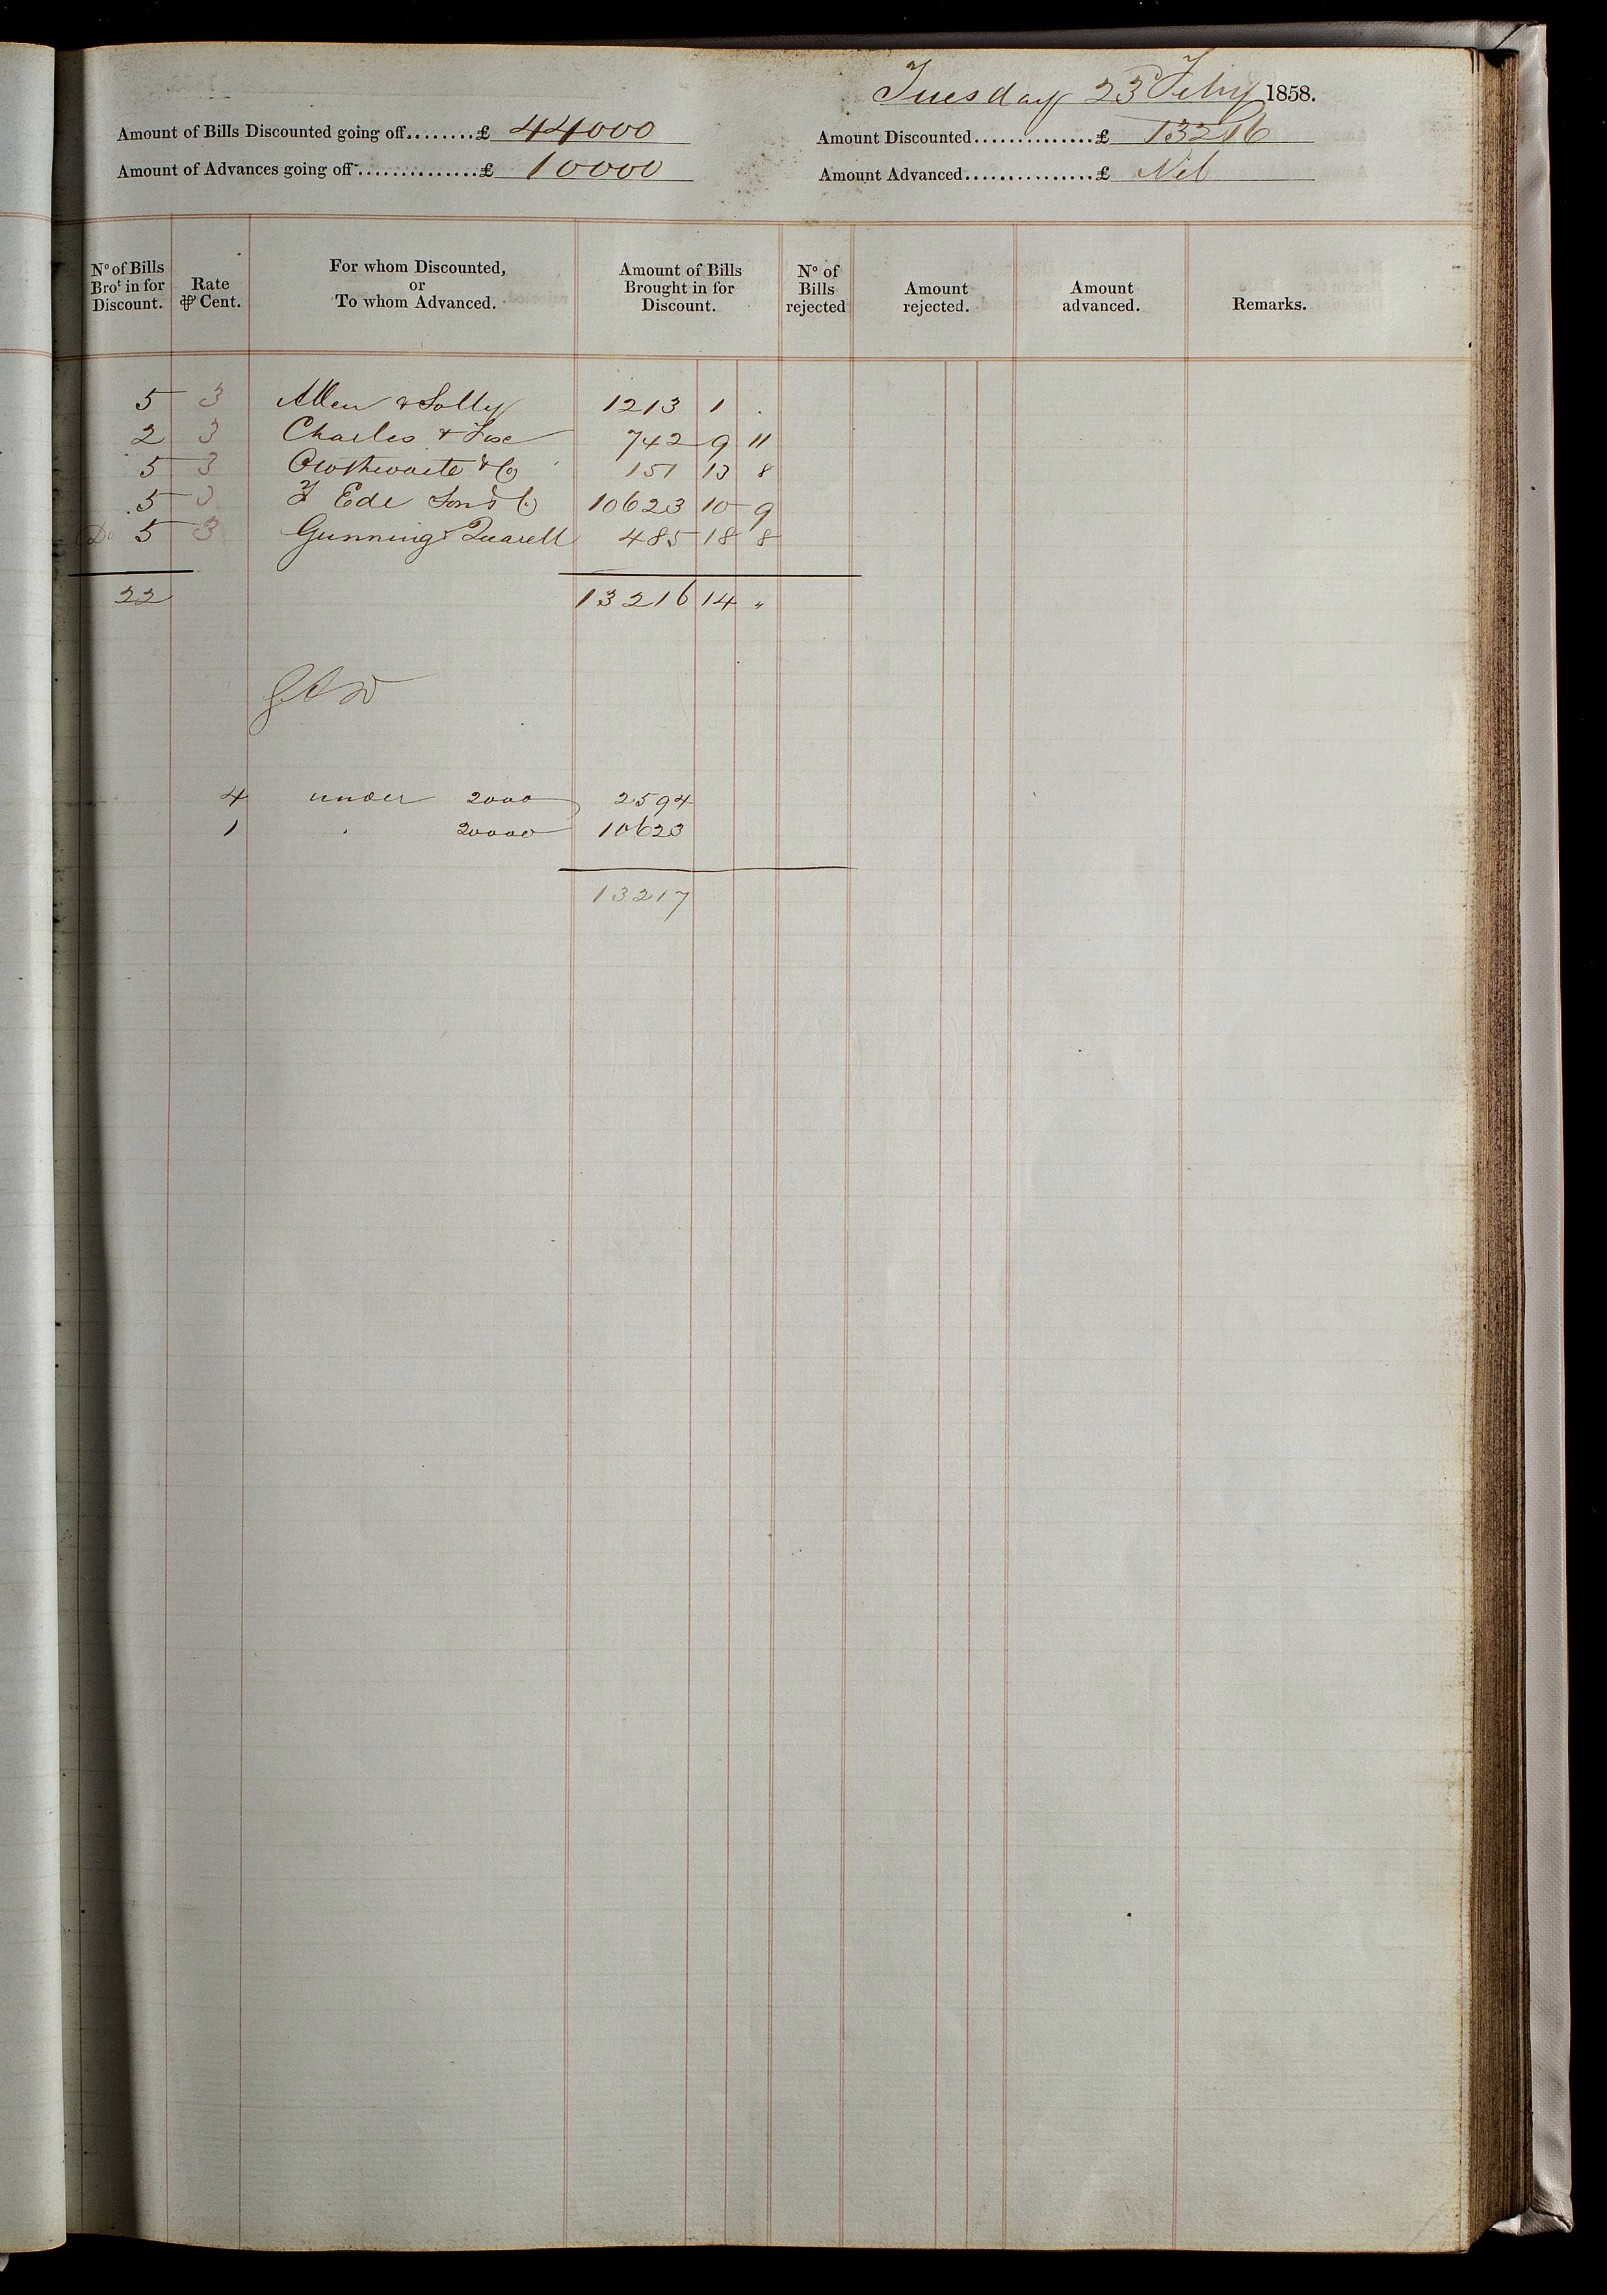 Tuesday 23 Feby 1858.
Amount of Bills Discounted going off........£ 44000
Amount Discounted..............£ 13216
Amount of Advances going off..............£ 10000
Amount Advanced...............£ Nil
No of Bills Brot in for Discount.
Rate ⅌ Cent.
For whom Discounted, or To whom Advanced.
Amount of Bills Brought in for Discount.
No of Bills rejected
Amount rejected.
Amount advanced.
Remarks.
5 3 Allen & Solly 1213 1 .
2 3 Charles & Fox 742 9 11
5 3 & Co 151 13 8
5 3 F Ede Son & Co 10623 10 9
Do 5 3 Gunning & Quarell 485 18 8
22 13216 14 "
4 under 2000 2594
1 " 20000 10623
13217